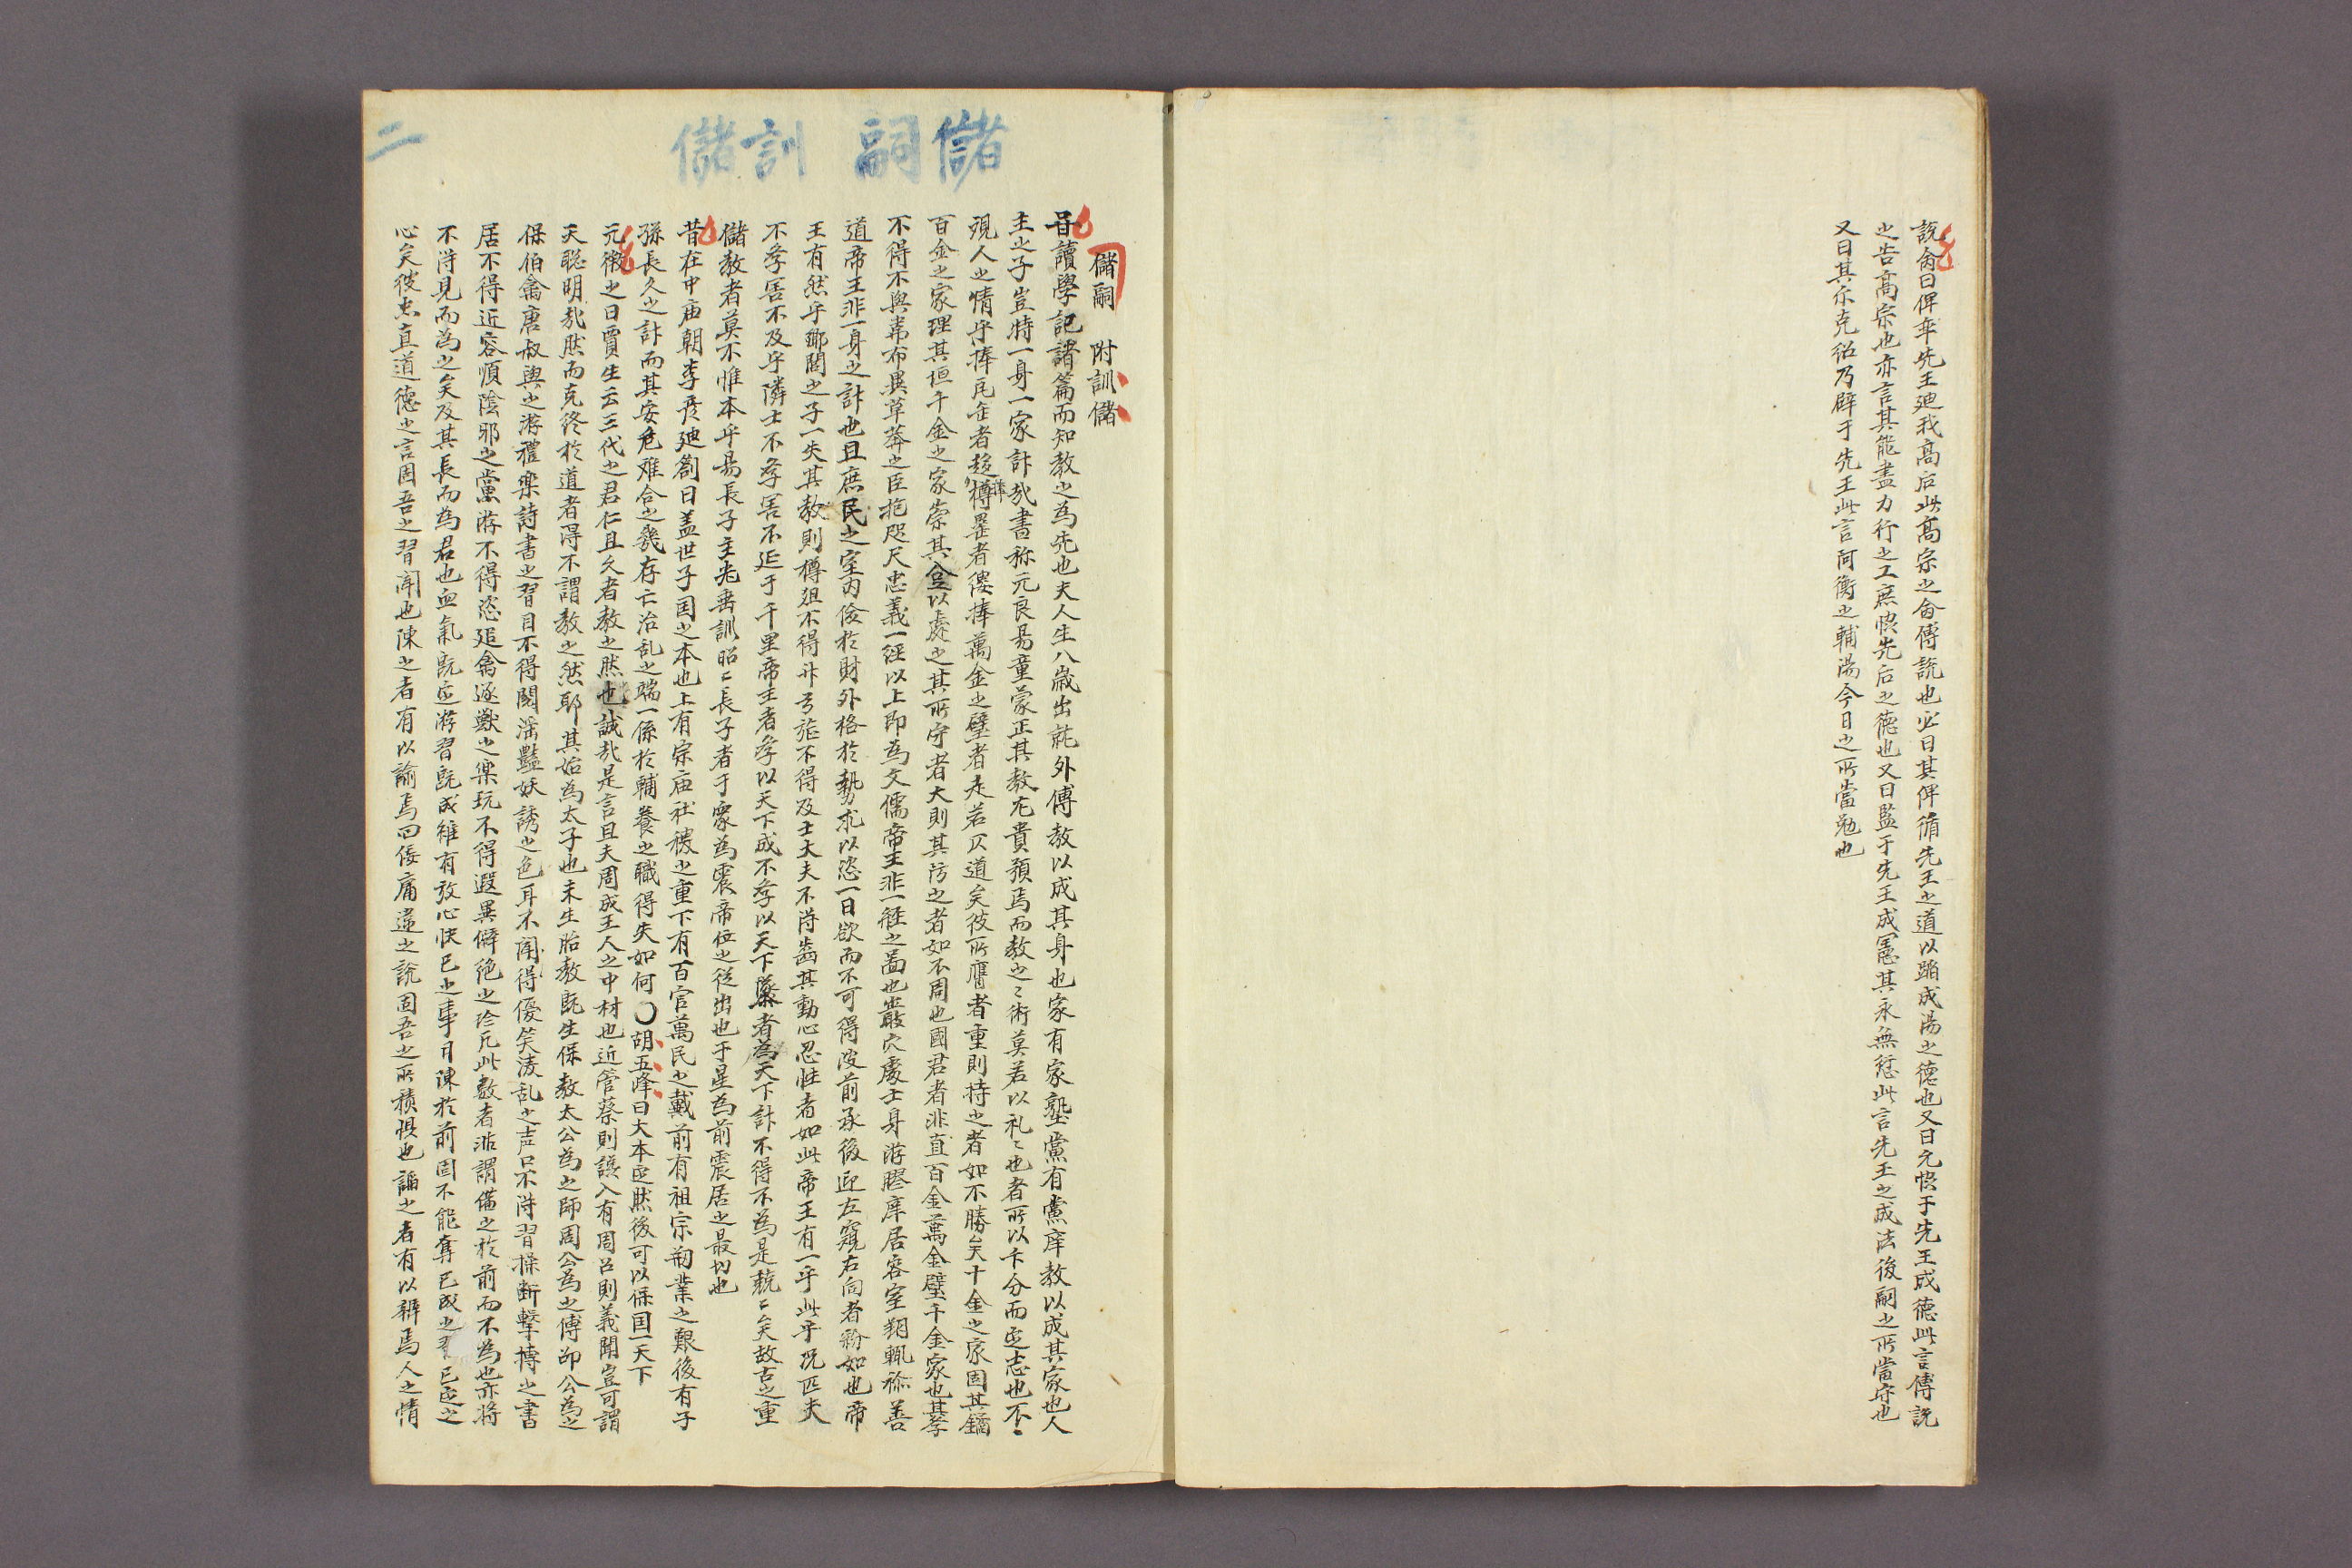 說命曰俾率先王廸我高后此高宗之命傅說也必曰其俾循先王之道以蹈成湯之德也又曰允恢于先王成德此言傅說
之告高宗也亦言其能盡力行之工庶恢先后之德也又曰監于先王成憲其永無愆此言先王之成法後嗣之所當守也
又曰其尔克紹乃辟于先王此言阿衡之輔湯今日之所當勉也
儲嗣 訓儲
二
儲嗣 附訓儲
甞讀學記諸篇而知教之為先也夫人生八歲出就外傅教以成其身也家有家塾黨有黨庠教以成其家也人
主之子豈特一身一家計㢤書称元良易童蒙正其教尤貴預焉而教之〻術莫若以礼〻也者所以卞分而定志也不〻
現人之情乎捧瓦缶者趍樽罍者僂捧萬金之璧者走若仄道矣彼所膺者重則持之者如不勝矣十金之家固其鐍
百金之家理其垣千金之家崇其以處之其所守者大則其防之者如不周也國君者非直百金萬金璧千金家也其孝
不得不與韋布異草莽之臣抱咫尺忠義一経以上即為文儒帝王非一経之啚也巖穴處士身游膠庠居容室翔輒称善
道帝王非一身之計也且庶民之室內儉於財外格於勢求以恣一日欲而不可得彼前承後迎左窺右向者紛如也帝
王有然乎鄉閭之子一失其教則樽俎不得升弓旌不得及士大夫不得齒其動心忍性者如此帝王有一乎此乎況匹夫
不孝害不及乎隣士不孝害不延于千里帝王者孝以天下成不孝以天下者為天下計不得不為是兢〻矣故古之重
儲教者莫不惟本乎易長子主兆垂訓昭〻長子者于象為震帝位之從出也于星為前震居之最切也
昔在中庙朝李彦廸劄曰盖世子囯之本也上有宗庙社稷之重下有百官萬民之戴前有祖宗刱業之艱後有子
孫長久之計而其安危难合之幾存亡治乱之端一係於輔養之職得失如何〇胡五峰曰大本定然後可以保囯一天下
元徵之曰賈生云三代之君仁且久者教之然也誠㢤是言且夫周成王人之中材也近管蔡則讒入有周召則義聞豈可謂
天聡明㢤然而克終於道者得不謂教之然耶其始為太子也未生胎教旣生保教太公為之師周公為之傅邵公為之
保伯禽唐叔與之游禮樂詩書之習目不得閱滛豔妖誘之色耳不聞得優笑淩乱之声口不得習操断擊搏之書
居不得近容順陰邪之黨游不得恣追禽逐獸之樂玩不得遐異僻絶之珍凢此數者非謂備之於前而不為也亦將
不得見而為之矣及其長而為君也血氣旣定游習旣成雖有放心快己之事日陳於前固不能奪已成之習已定之
心矣彼忠直道德之言固吾之習聞也陳之者有以諭焉回佞庸違之說固吾之所積惧也諂之者有以辨焉人之情